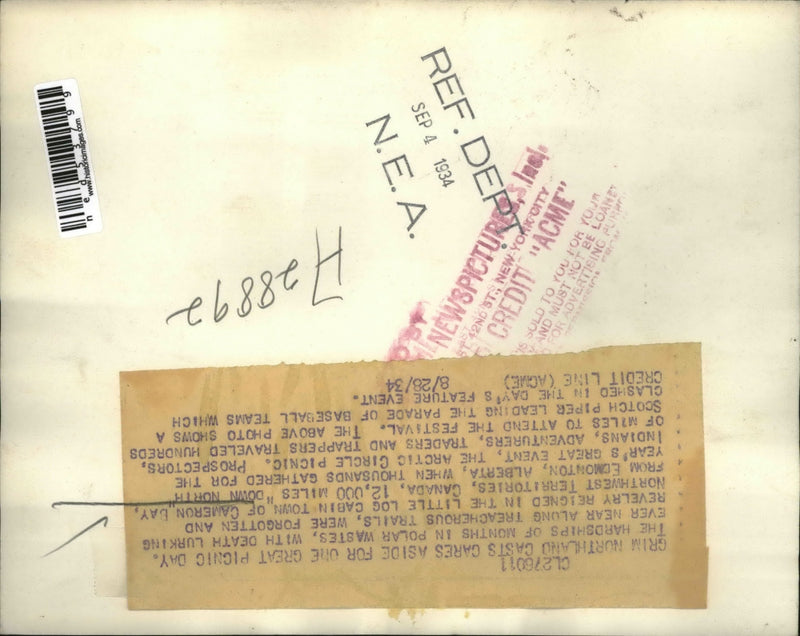 CL276011
GRIM NORTHLAND CASTS CARES ASIDE FOR ONE GREAT PICNIC DAY.
THE HARDSHIPS OF MONTHS IN POLAR WASTES, WITH DEATH LURKING
EVER NEAR ALONG TREACHEROUS TRAILS, WERE FORGOTTEN AND
REVELRY REIGNED IN THE LITTLE LOG CABIN TOWN OF CAMERON BAY,
NORTHWEST TERRITORIES, CANADA, 12,000 MILES "DOWN NORTH"
FROM EDMONTON, ALBERTA, WHEN THOUSANDS GATHERED FOR THE
YEAR'S GREAT EVENT, THE ARCTIC CIRCLE PICNIC. PROSPECTORS,
INDIANS, ADVENTURERS, TRADERS AND TRAPPERS TRAVELED HUNDREDS
OF MILES TO ATTEND THE FESTIVAL. THE ABOVE PHOTO SHOWS A
SCOTCH PIPER LEADING THE PARADE OF BASEBALL TEAMS WHICH
CLASHED IN THE DAY'S FEATURE EVENT.
CREDIT LINE (ACME) 8/28/34
H28892
REF. DEPT.
SEP 4 1934
N.E.A.
BY
NEWSPICTURES, Inc.
42ND ST., NEW YORK CITY
CREDIT "ACME"
IS SOLD TO YOU FOR YOUR
AND MUST NOT BE LOANED
FOR ADVERTISING
www.historicimages.com